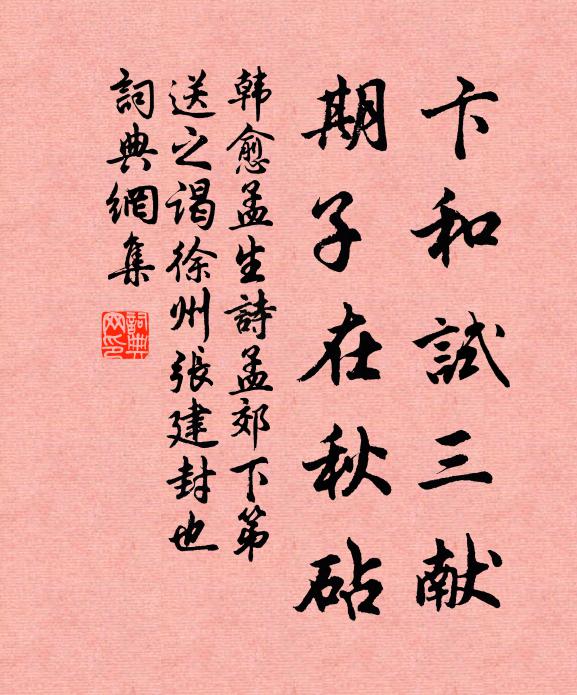 卞和試三献
期子在秋砧
韓愈孟生詩孟郊下第
送之谒徐州張建封也
詞典網集
詞典網印